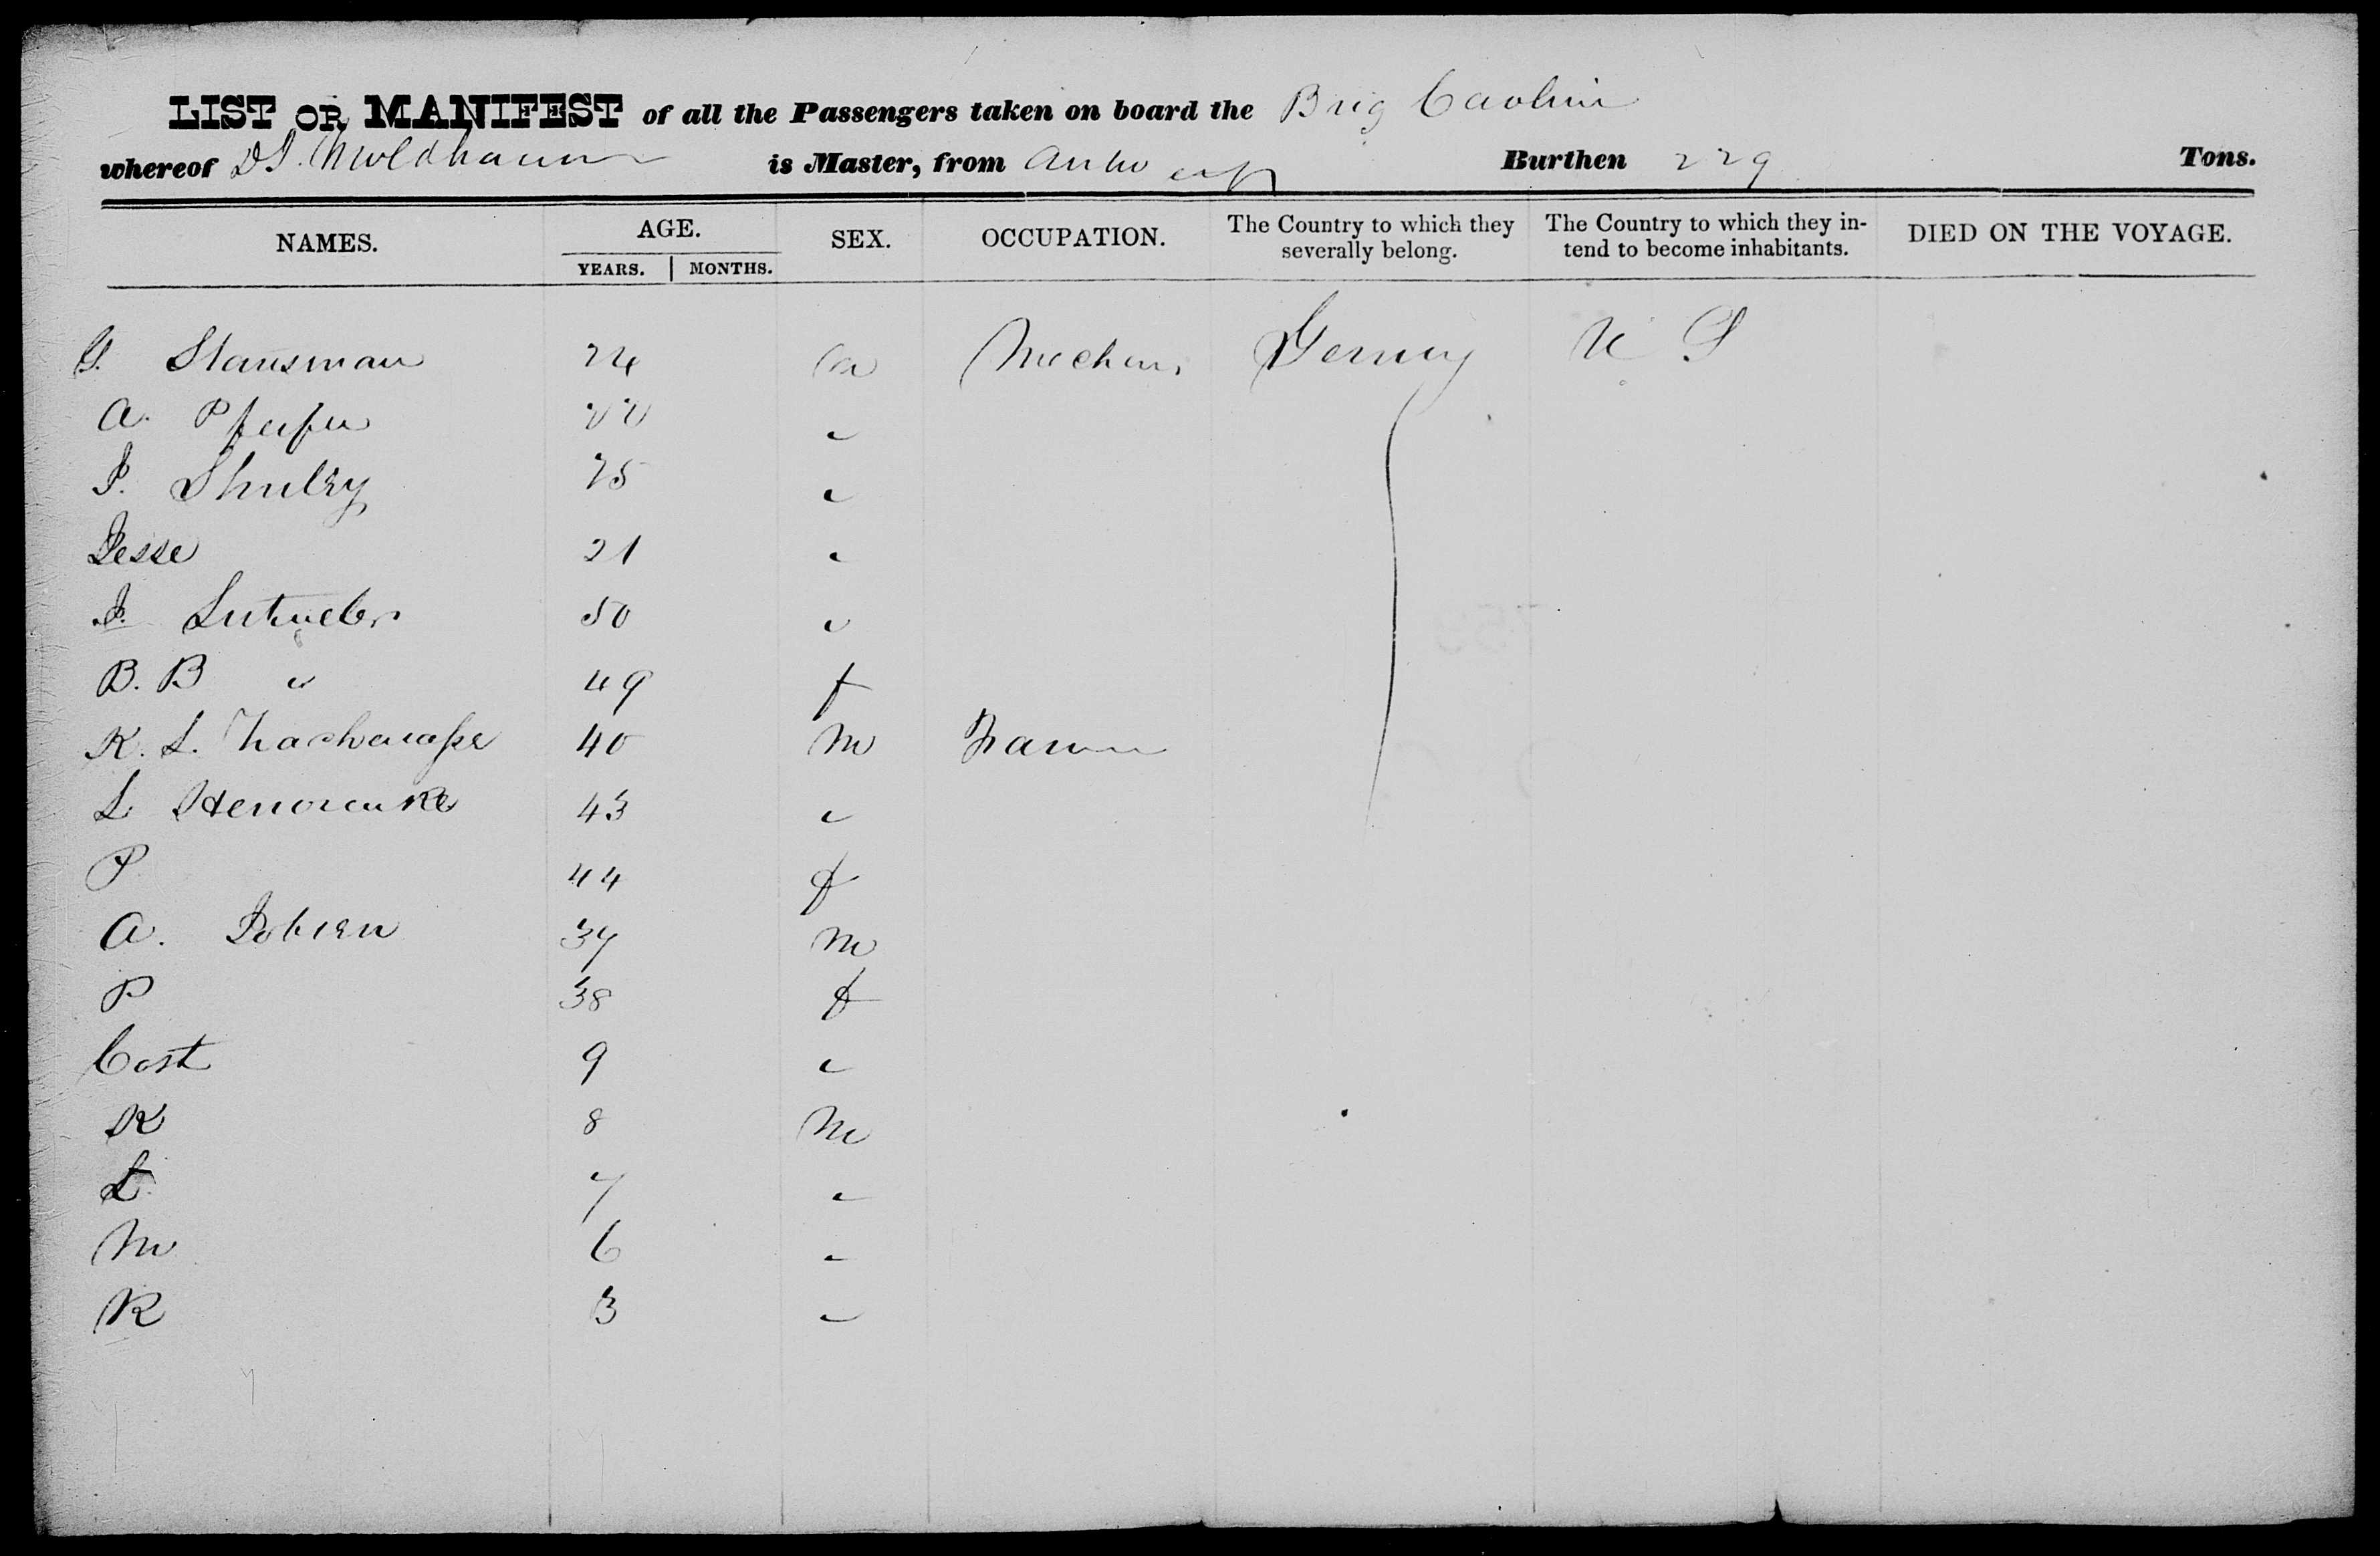 LIST OR MANIFEST of all the Passengers taken on board the Brig Caroline
whereof is Master, from Antwerp Burthen 229 Tons.
NAMES. AGE. YEARS. MONTHS. SEX. OCCUPATION. The Country to which they severally belong. The Country to which they intend to become inhabitants. DIED ON THE VOYAGE.
G. Stausman 24 Mechan Germy U S
A. Pfeifer 22 "
J. 25 "
Jesse 21 "
J. 50 "
B. B " 49 f
K. L. 40 m Farm
L 43 "
P 44 f
A. Jobien 37 m
P 38 f
Cost 9 "
K 8 m
L 7 "
M 6 "
R 3 "